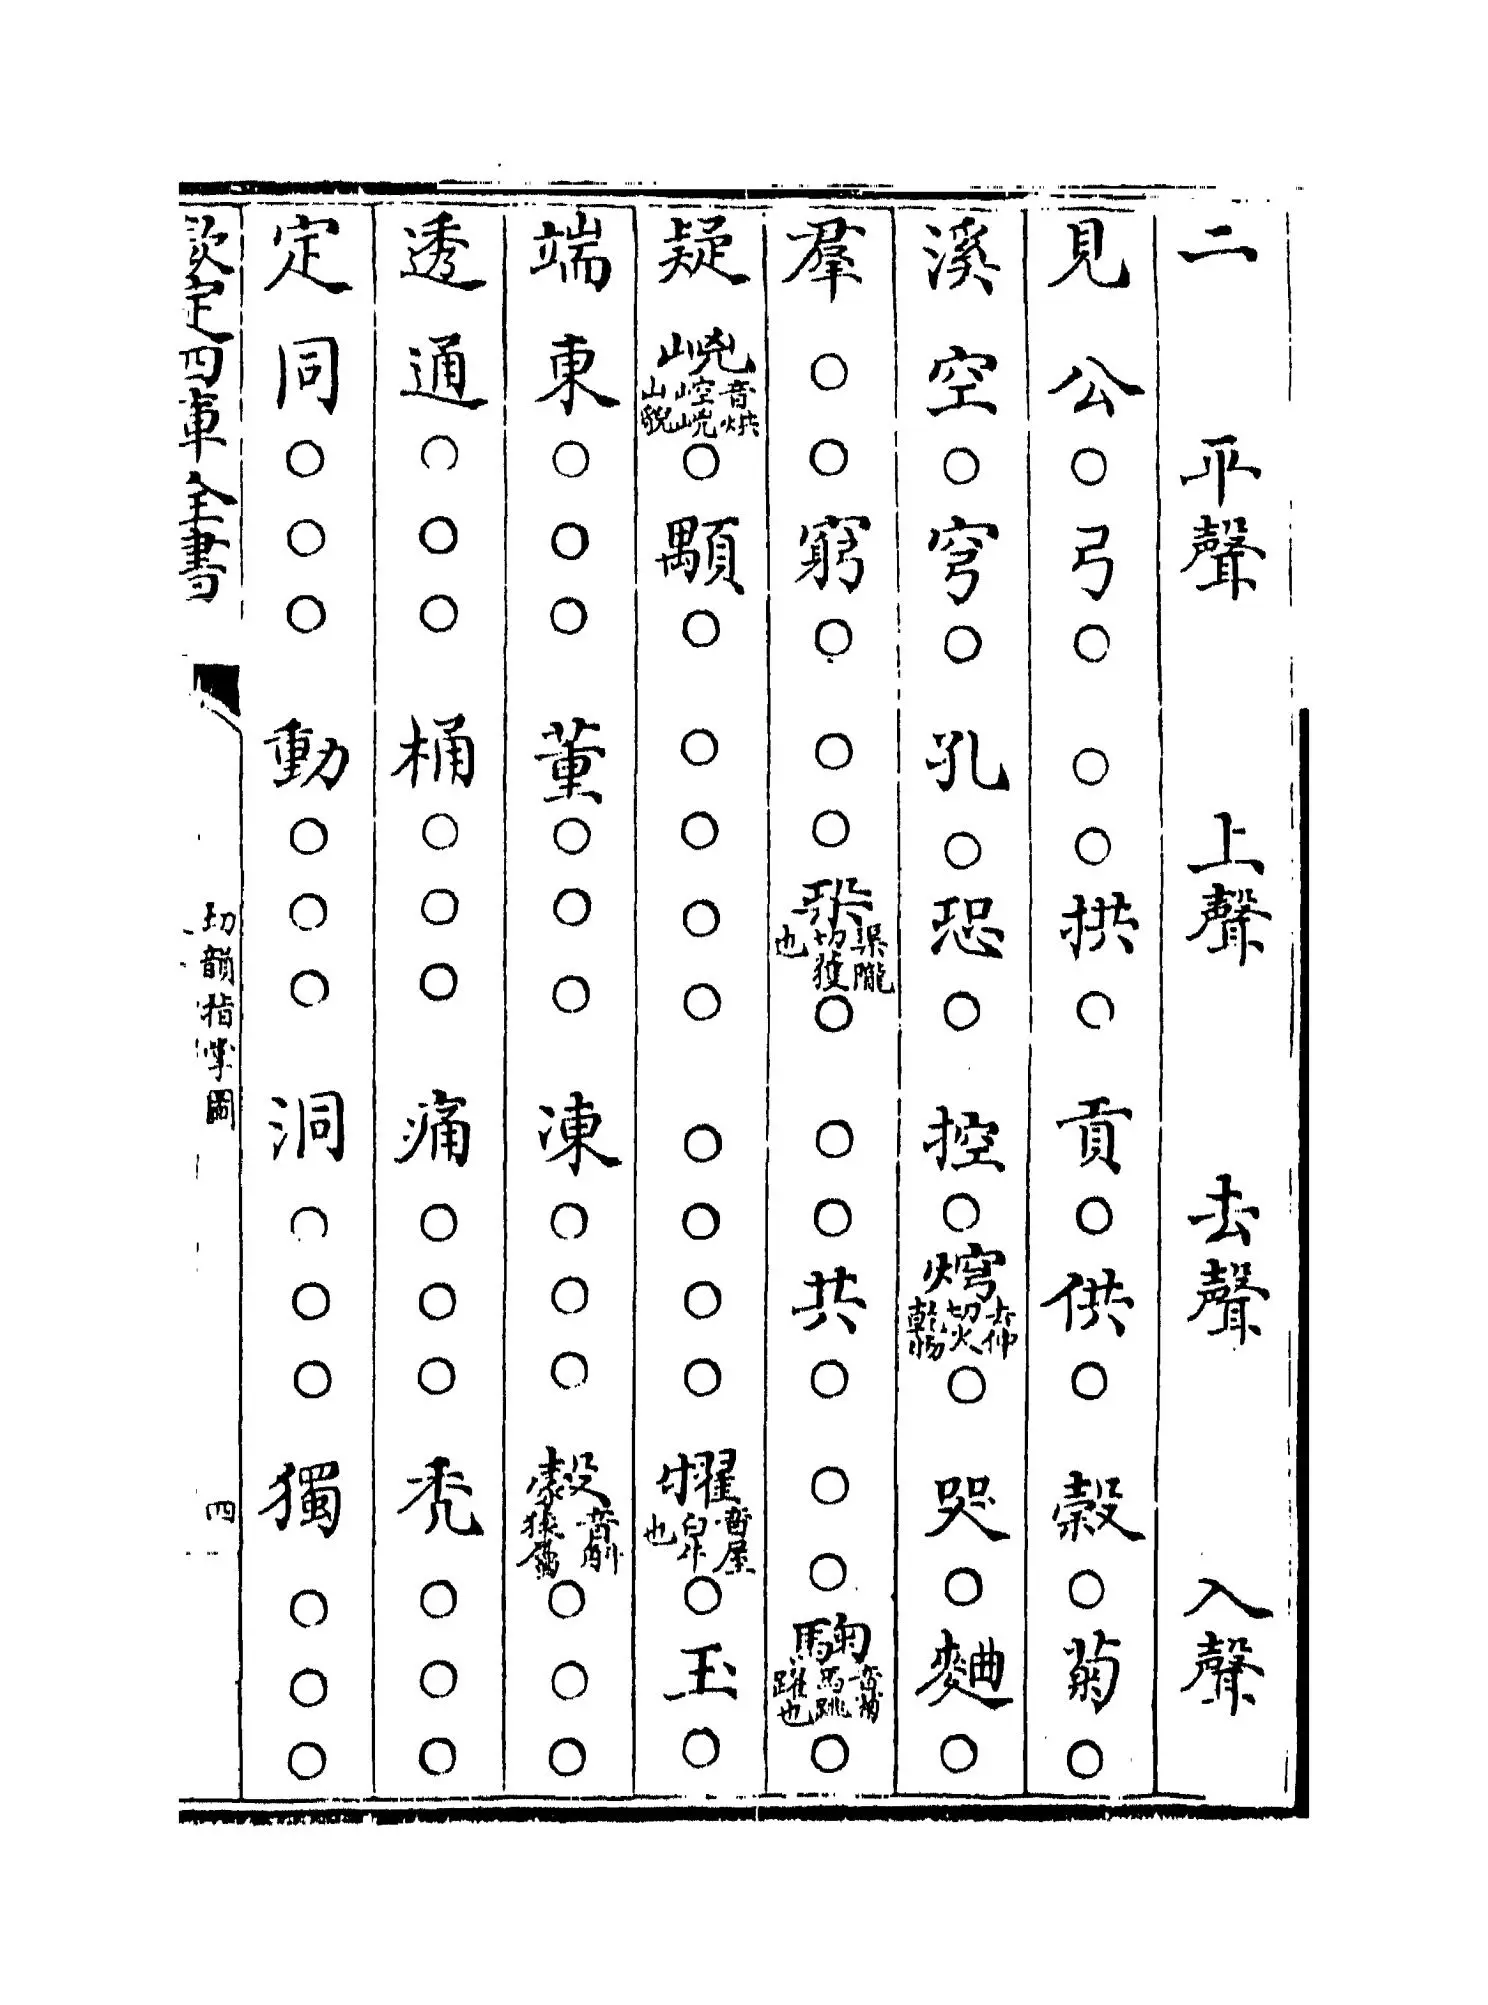 二 平聲 上聲 去聲 入聲
見 公○弓○ ○○拱○ 貢○供○ 穀○菊○
溪 空○穹○ 孔○恐○ 控○焪去仲切火乾物○ 哭○麯○
羣 ○○窮○ ○○㭟渠隴切㨿也○ ○○共○ ○○驧音菊馬跳躍也○
疑 㟅音烘崆㟅山貌○顒○ ○○○○ ○○○○ 㩴音屋臼也○玉○
端 東○○○ 董○○○ 凍○○○ 㝅○○○
透 通○○○ 桶○○○ 痛○○○ 秃○○○
定 同○○○ 動○○○ 洞○○○ 獨○○○
欽定四庫全書 切韻指掌圖 四